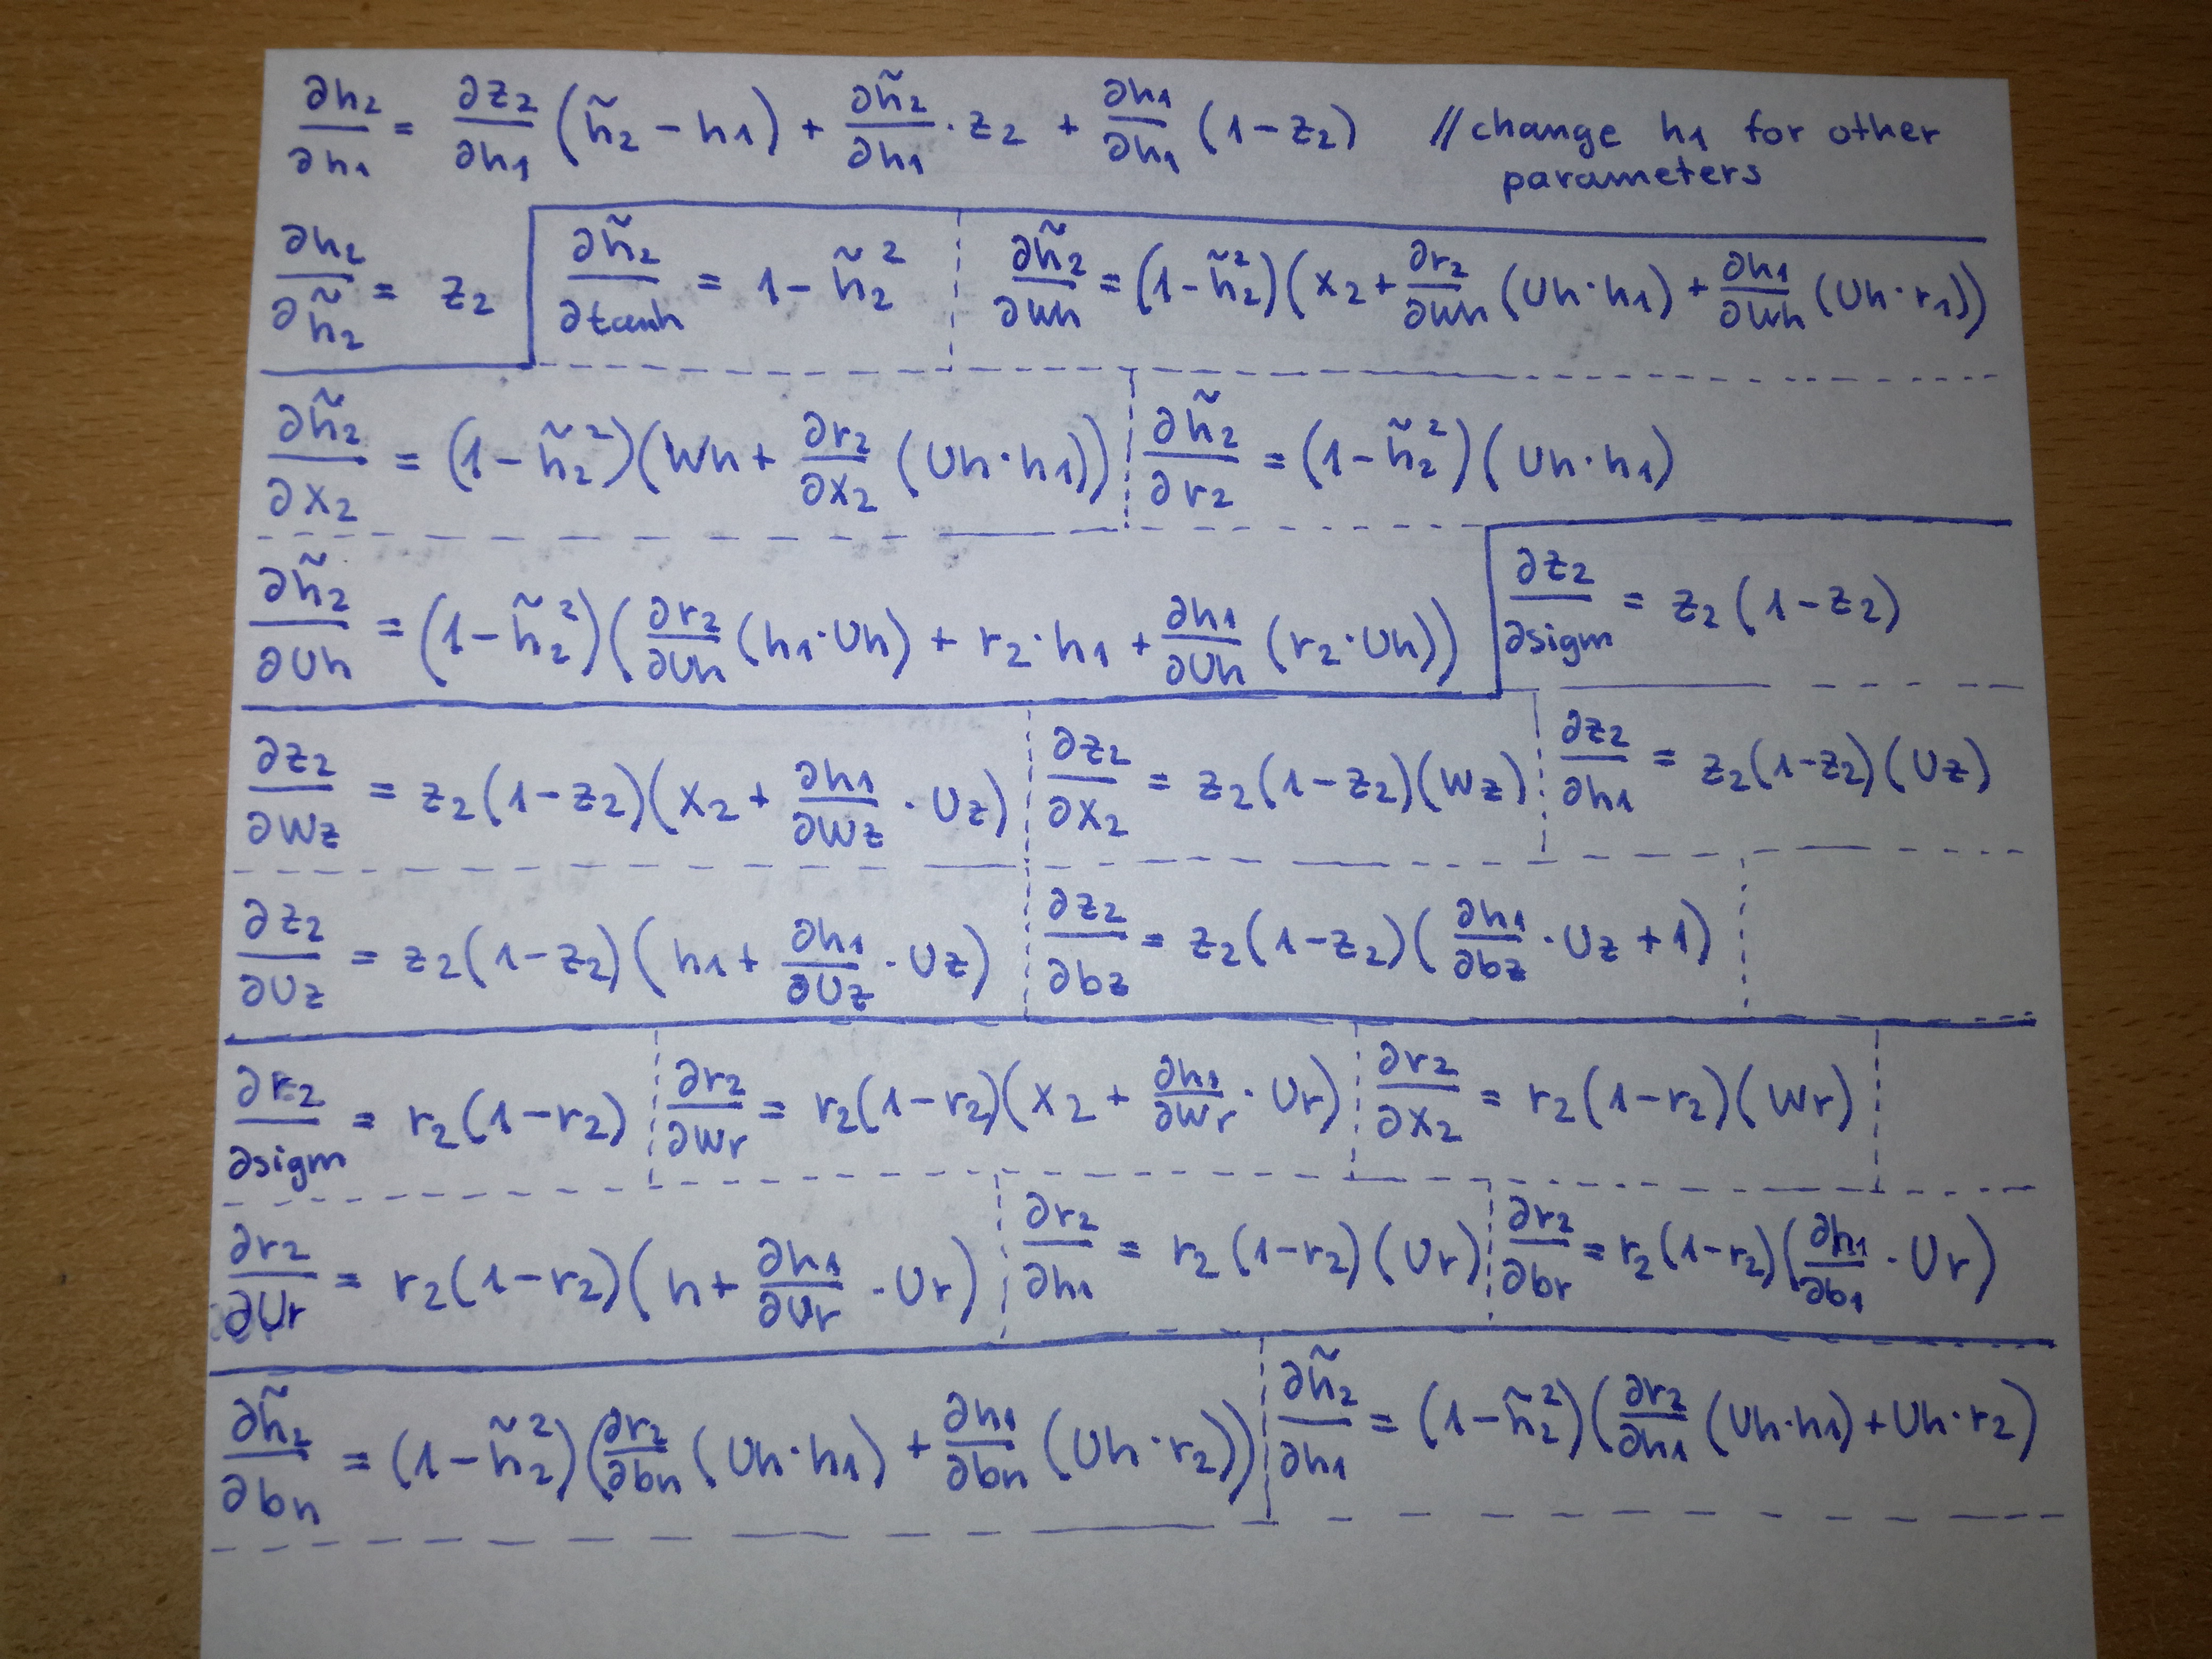 ∂h2/∂h1 = ∂z2/∂h1 (h̃2 − h1) + ∂h̃2/∂h1 · z2 + ∂h1/∂h1 (1 − z2) // change h1 for other
parameters
∂h2/∂h̃2 = z2
∂h̃2/∂tanh = 1 − h̃2²
∂h̃2/∂Wh = (1 − h̃2²)(x2 + ∂r2/∂Wh (Uh · h1) + ∂h1/∂Wh (Uh · r1))
∂h̃2/∂x2 = (1 − h̃2²)(Wh + ∂r2/∂x2 (Uh · h1))
∂h̃2/∂r2 = (1 − h̃2²)(Uh · h1)
∂h̃2/∂Uh = (1 − h̃2²)(∂r2/∂Uh (h1 · Uh) + r2 · h1 + ∂h1/∂Uh (r2 · Uh))
∂z2/∂sigm = z2(1 − z2)
∂z2/∂Wz = z2(1 − z2)(x2 + ∂h1/∂Wz · Uz)
∂z2/∂x2 = z2(1 − z2)(Wz)
∂z2/∂h1 = z2(1 − z2)(Uz)
∂z2/∂Uz = z2(1 − z2)(h1 + ∂h1/∂Uz · Uz)
∂z2/∂bz = z2(1 − z2)(∂h1/∂bz · Uz + 1)
∂r2/∂sigm = r2(1 − r2)
∂r2/∂Wr = r2(1 − r2)(x2 + ∂h1/∂Wr · Ur)
∂r2/∂x2 = r2(1 − r2)(Wr)
∂r2/∂Ur = r2(1 − r2)(h + ∂h1/∂Ur · Ur)
∂r2/∂h1 = r2(1 − r2)(Ur)
∂r2/∂br = r2(1 − r2)(∂h1/∂b1 · Ur)
∂h̃2/∂bh = (1 − h̃2²)(∂r2/∂bh (Uh · h1) + ∂h1/∂bh (Uh · r2))
∂h̃2/∂h1 = (1 − h̃2²)(∂r2/∂h1 (Uh · h1) + Uh · r2)